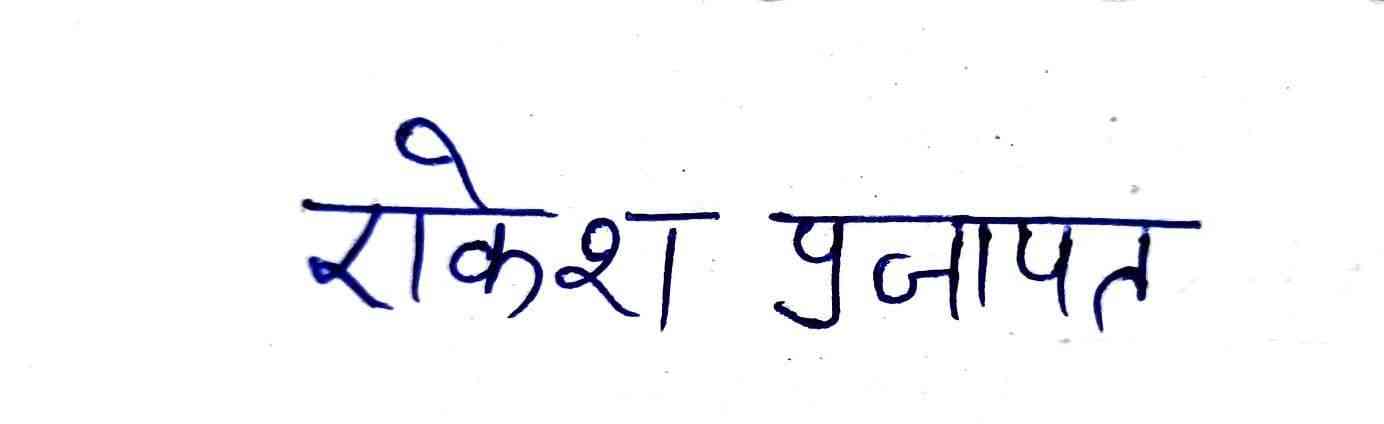 राकेश प्रजापत